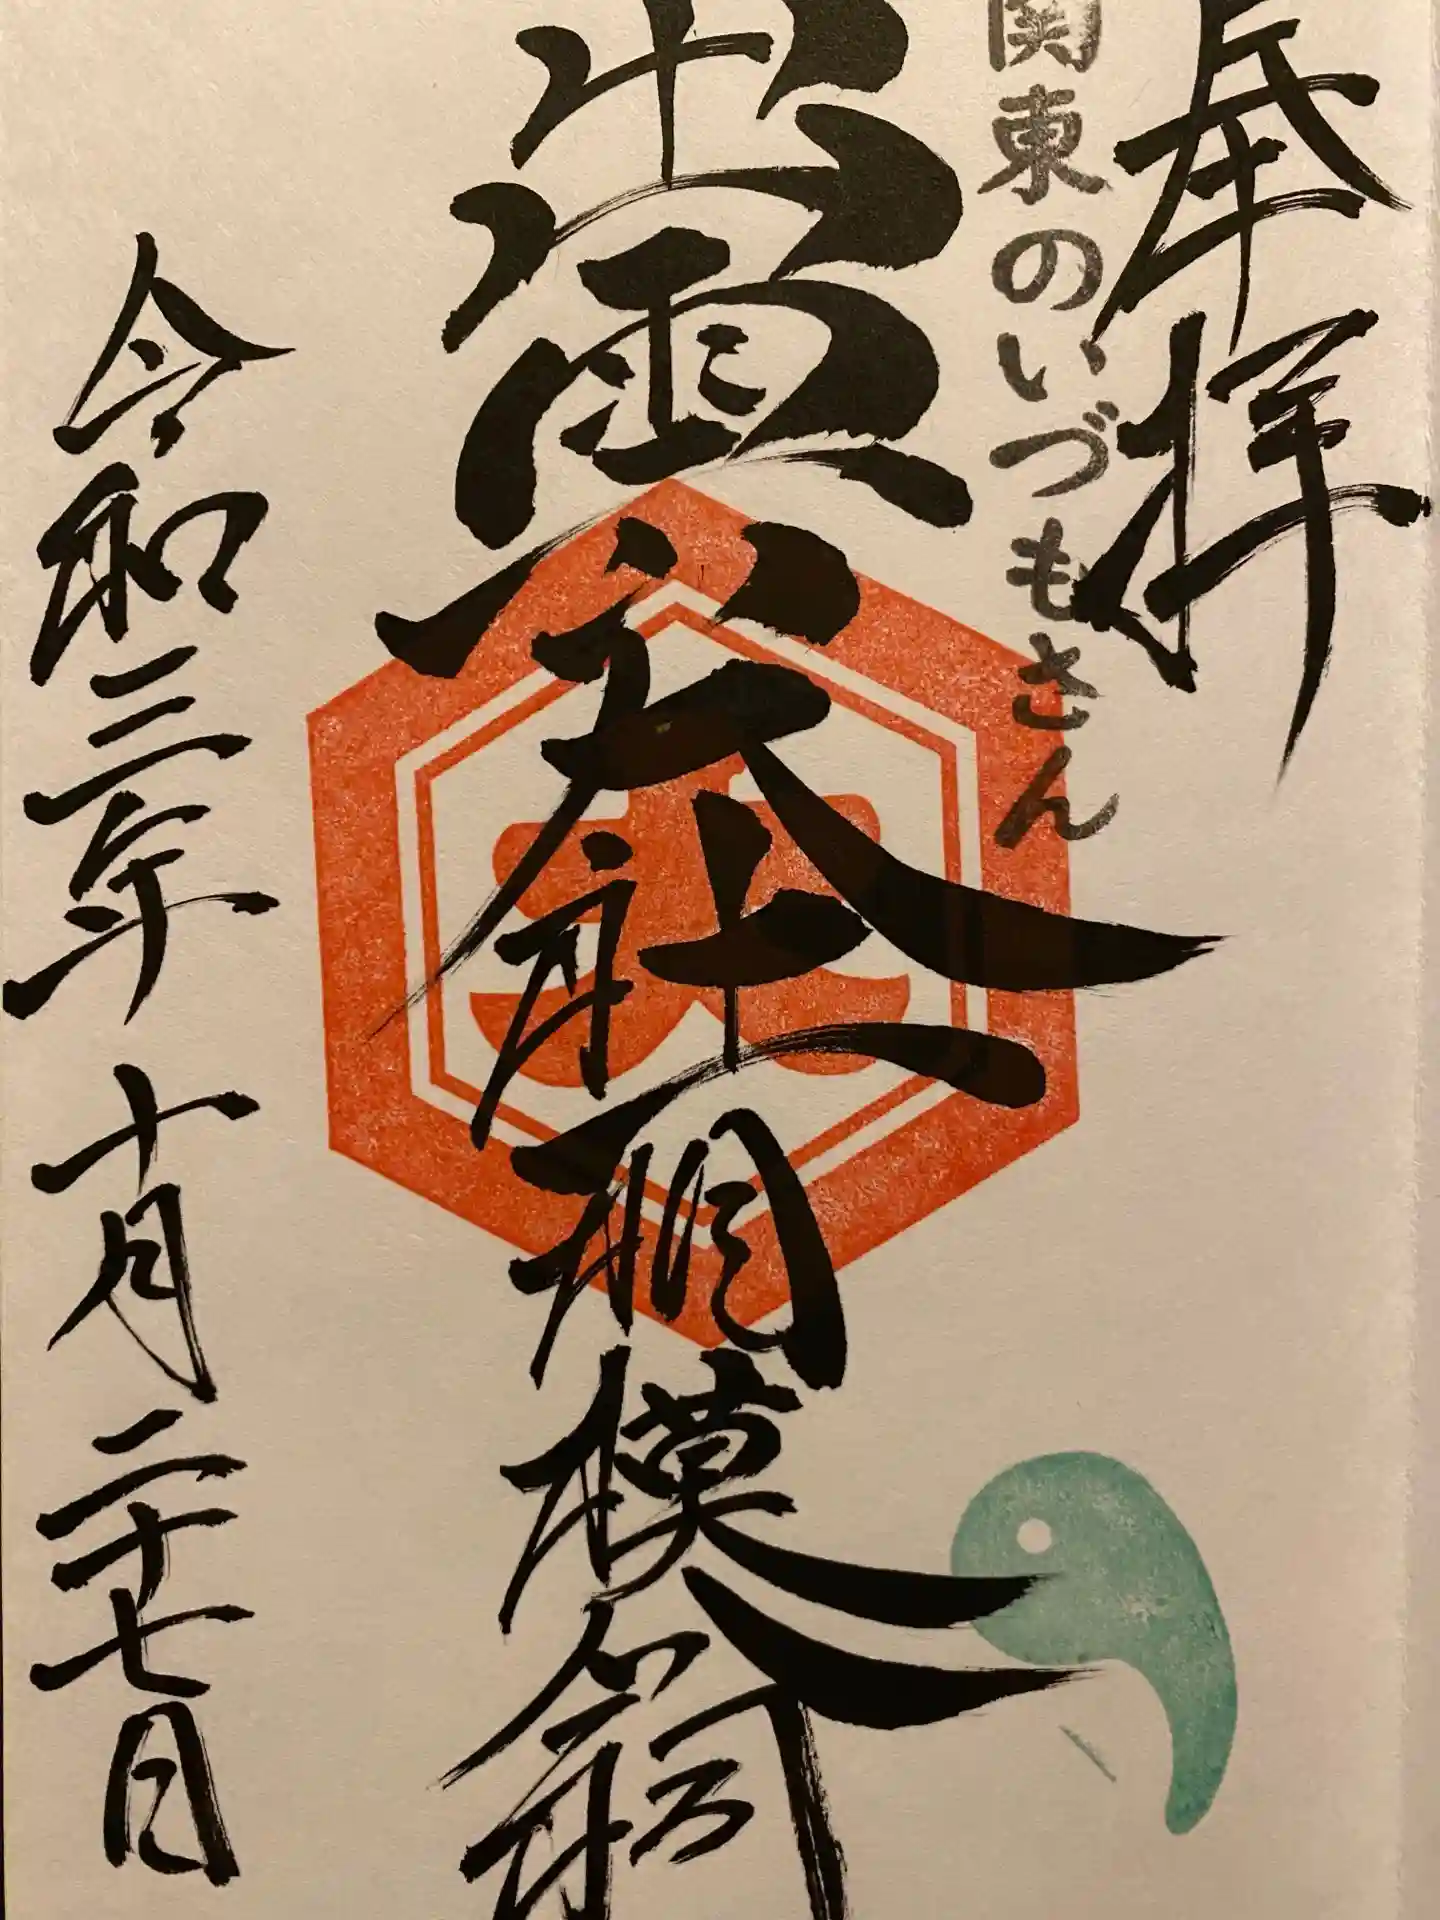 奉拝
関東のいづもさん
出雲大社相模分祠
大
令和三年十月二十七日